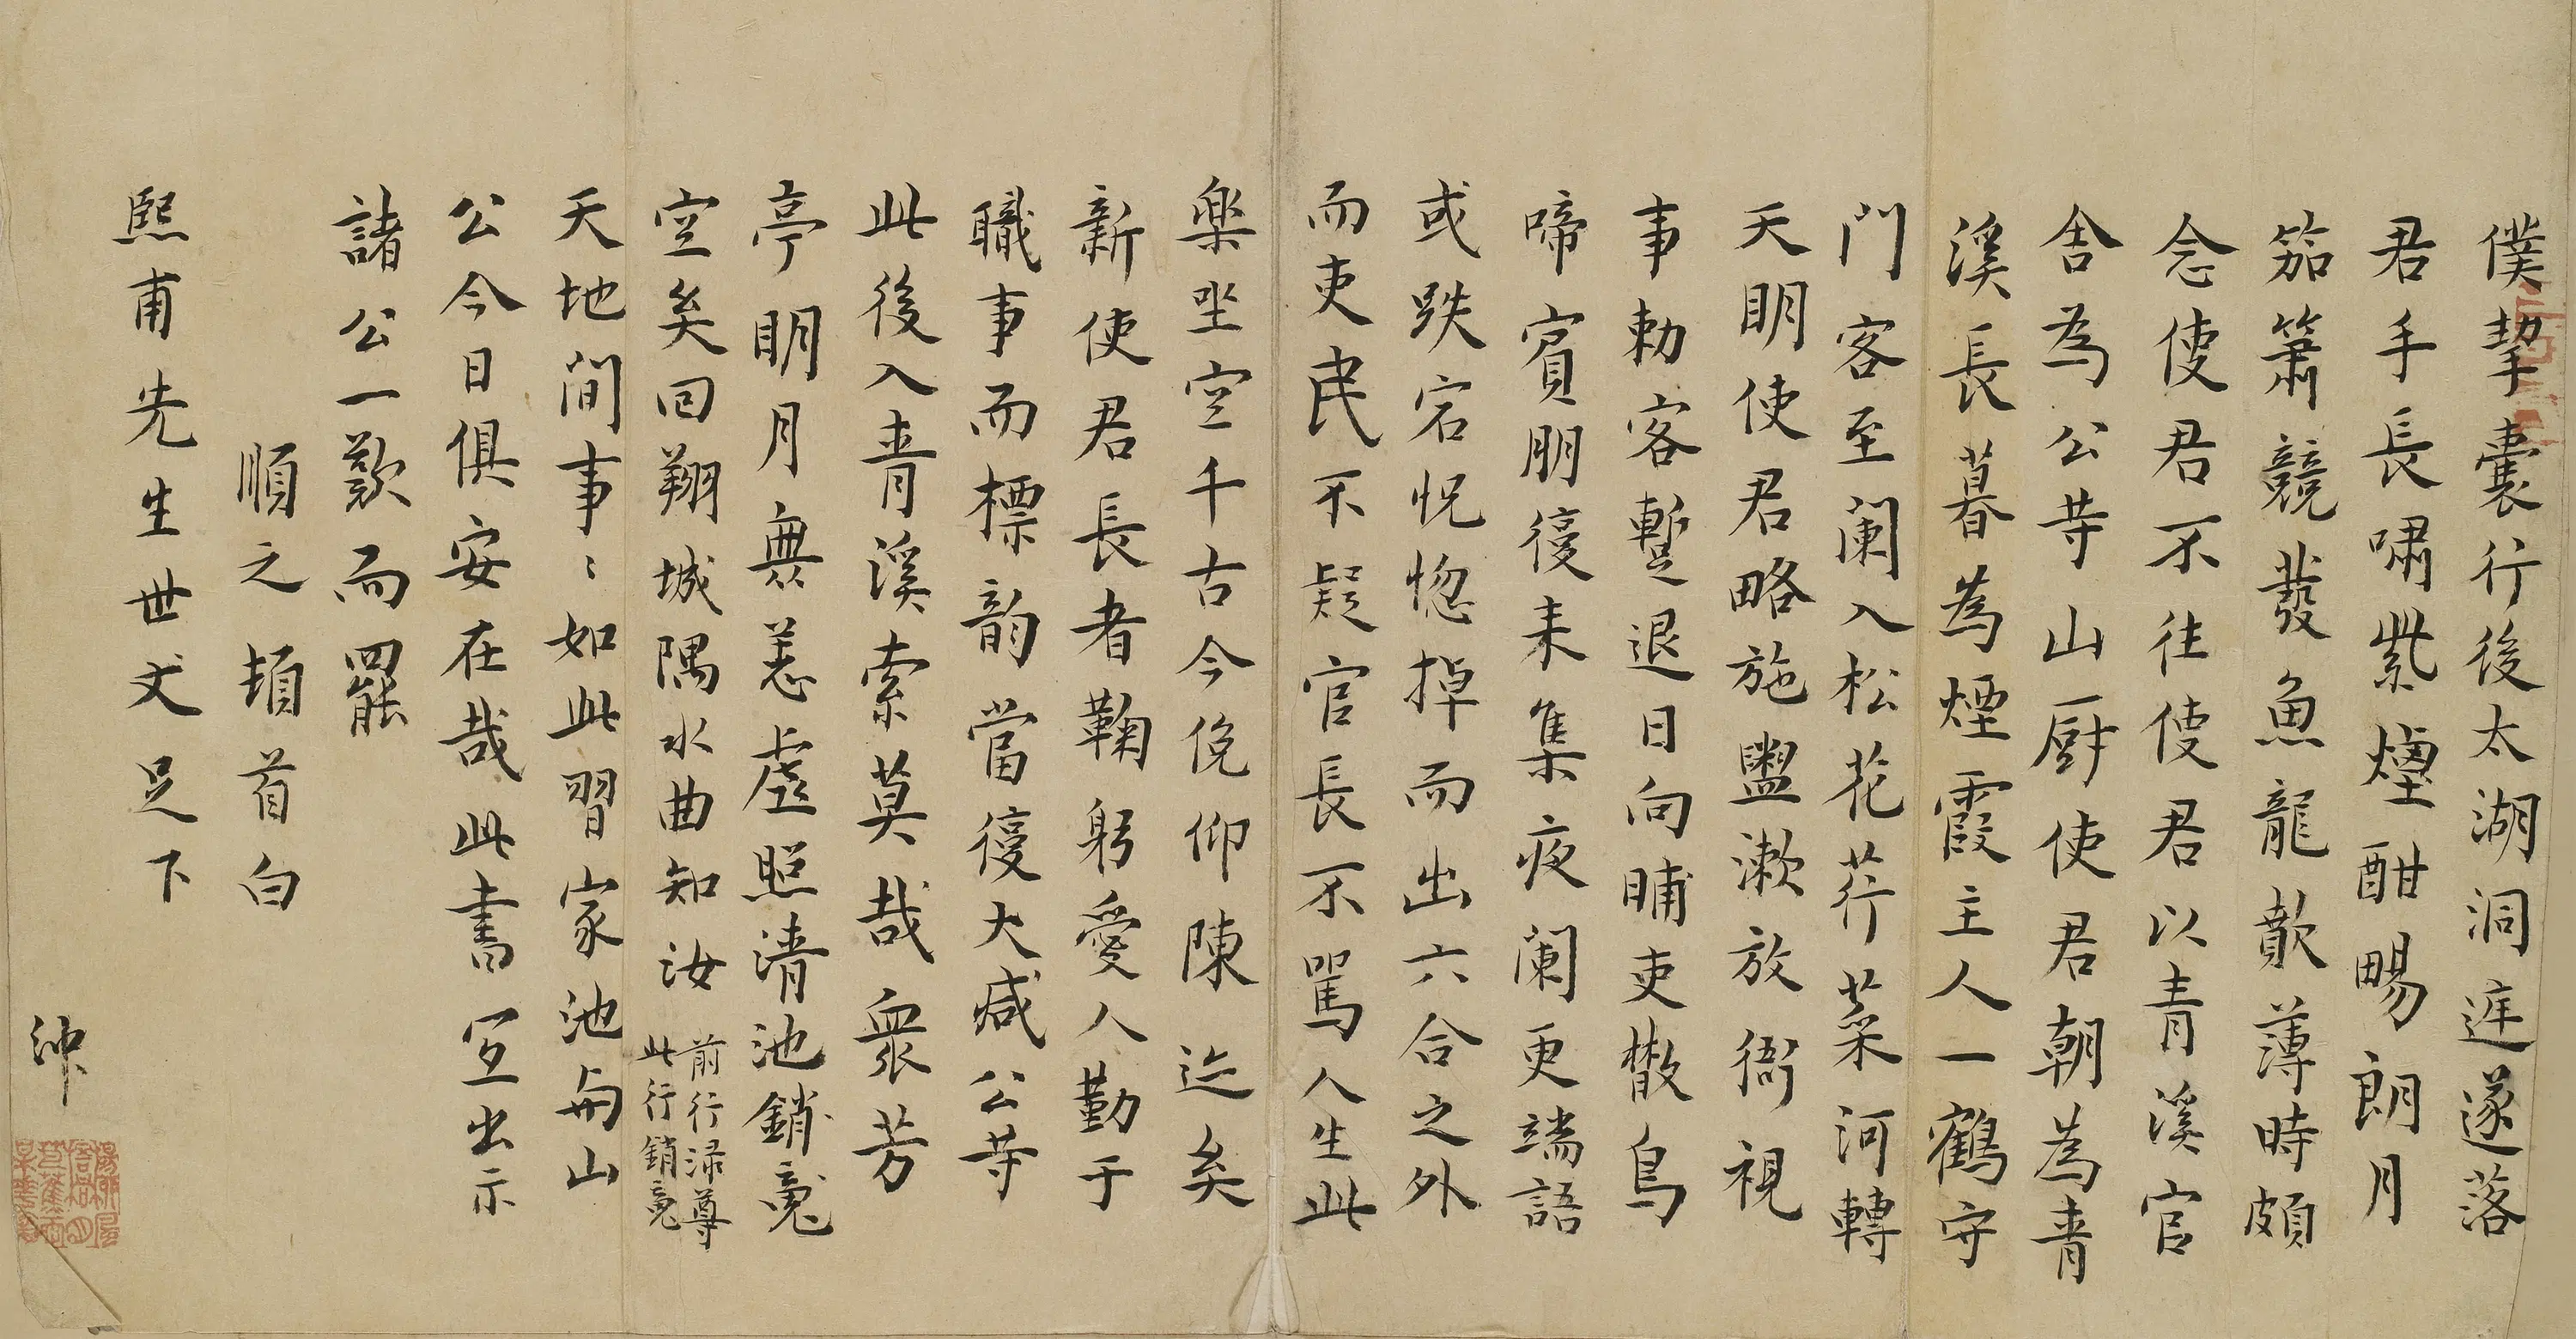 僕挈囊行後太湖洞遅遂落
君手長嘯紫煙酣暢朗月
笳簫競發魚龍歕薄時頗
念使君不往使君以青溪官
舍為公寺山厨使君朝為青
溪長暮為煙霞主人一鶴守
門客至闌入松花荇菜河轉
天明使君略施盥漱放衙視
事勅客蹔退日向晡吏散鳥
啼賓朋復来集夜闌更端語
或跌宕怳惚掉而出六合之外
而吏民不疑官長不罵人生此
樂坐空千古今俛仰陳迹矣
新使君長者鞠躬愛人勤于
職事而標韵當復大減公寺
此後入青溪索莫哉衆芳
亭明月無恙虛照清池銷魂
空矣回翔城隅水曲知汝
前行渌尊
此行銷魂
天地間事〻如此習家池與山
公今日俱安在哉此書宜出示
諸公一歎而罷
順之頓首白
熙甫先生世丈足下
沖